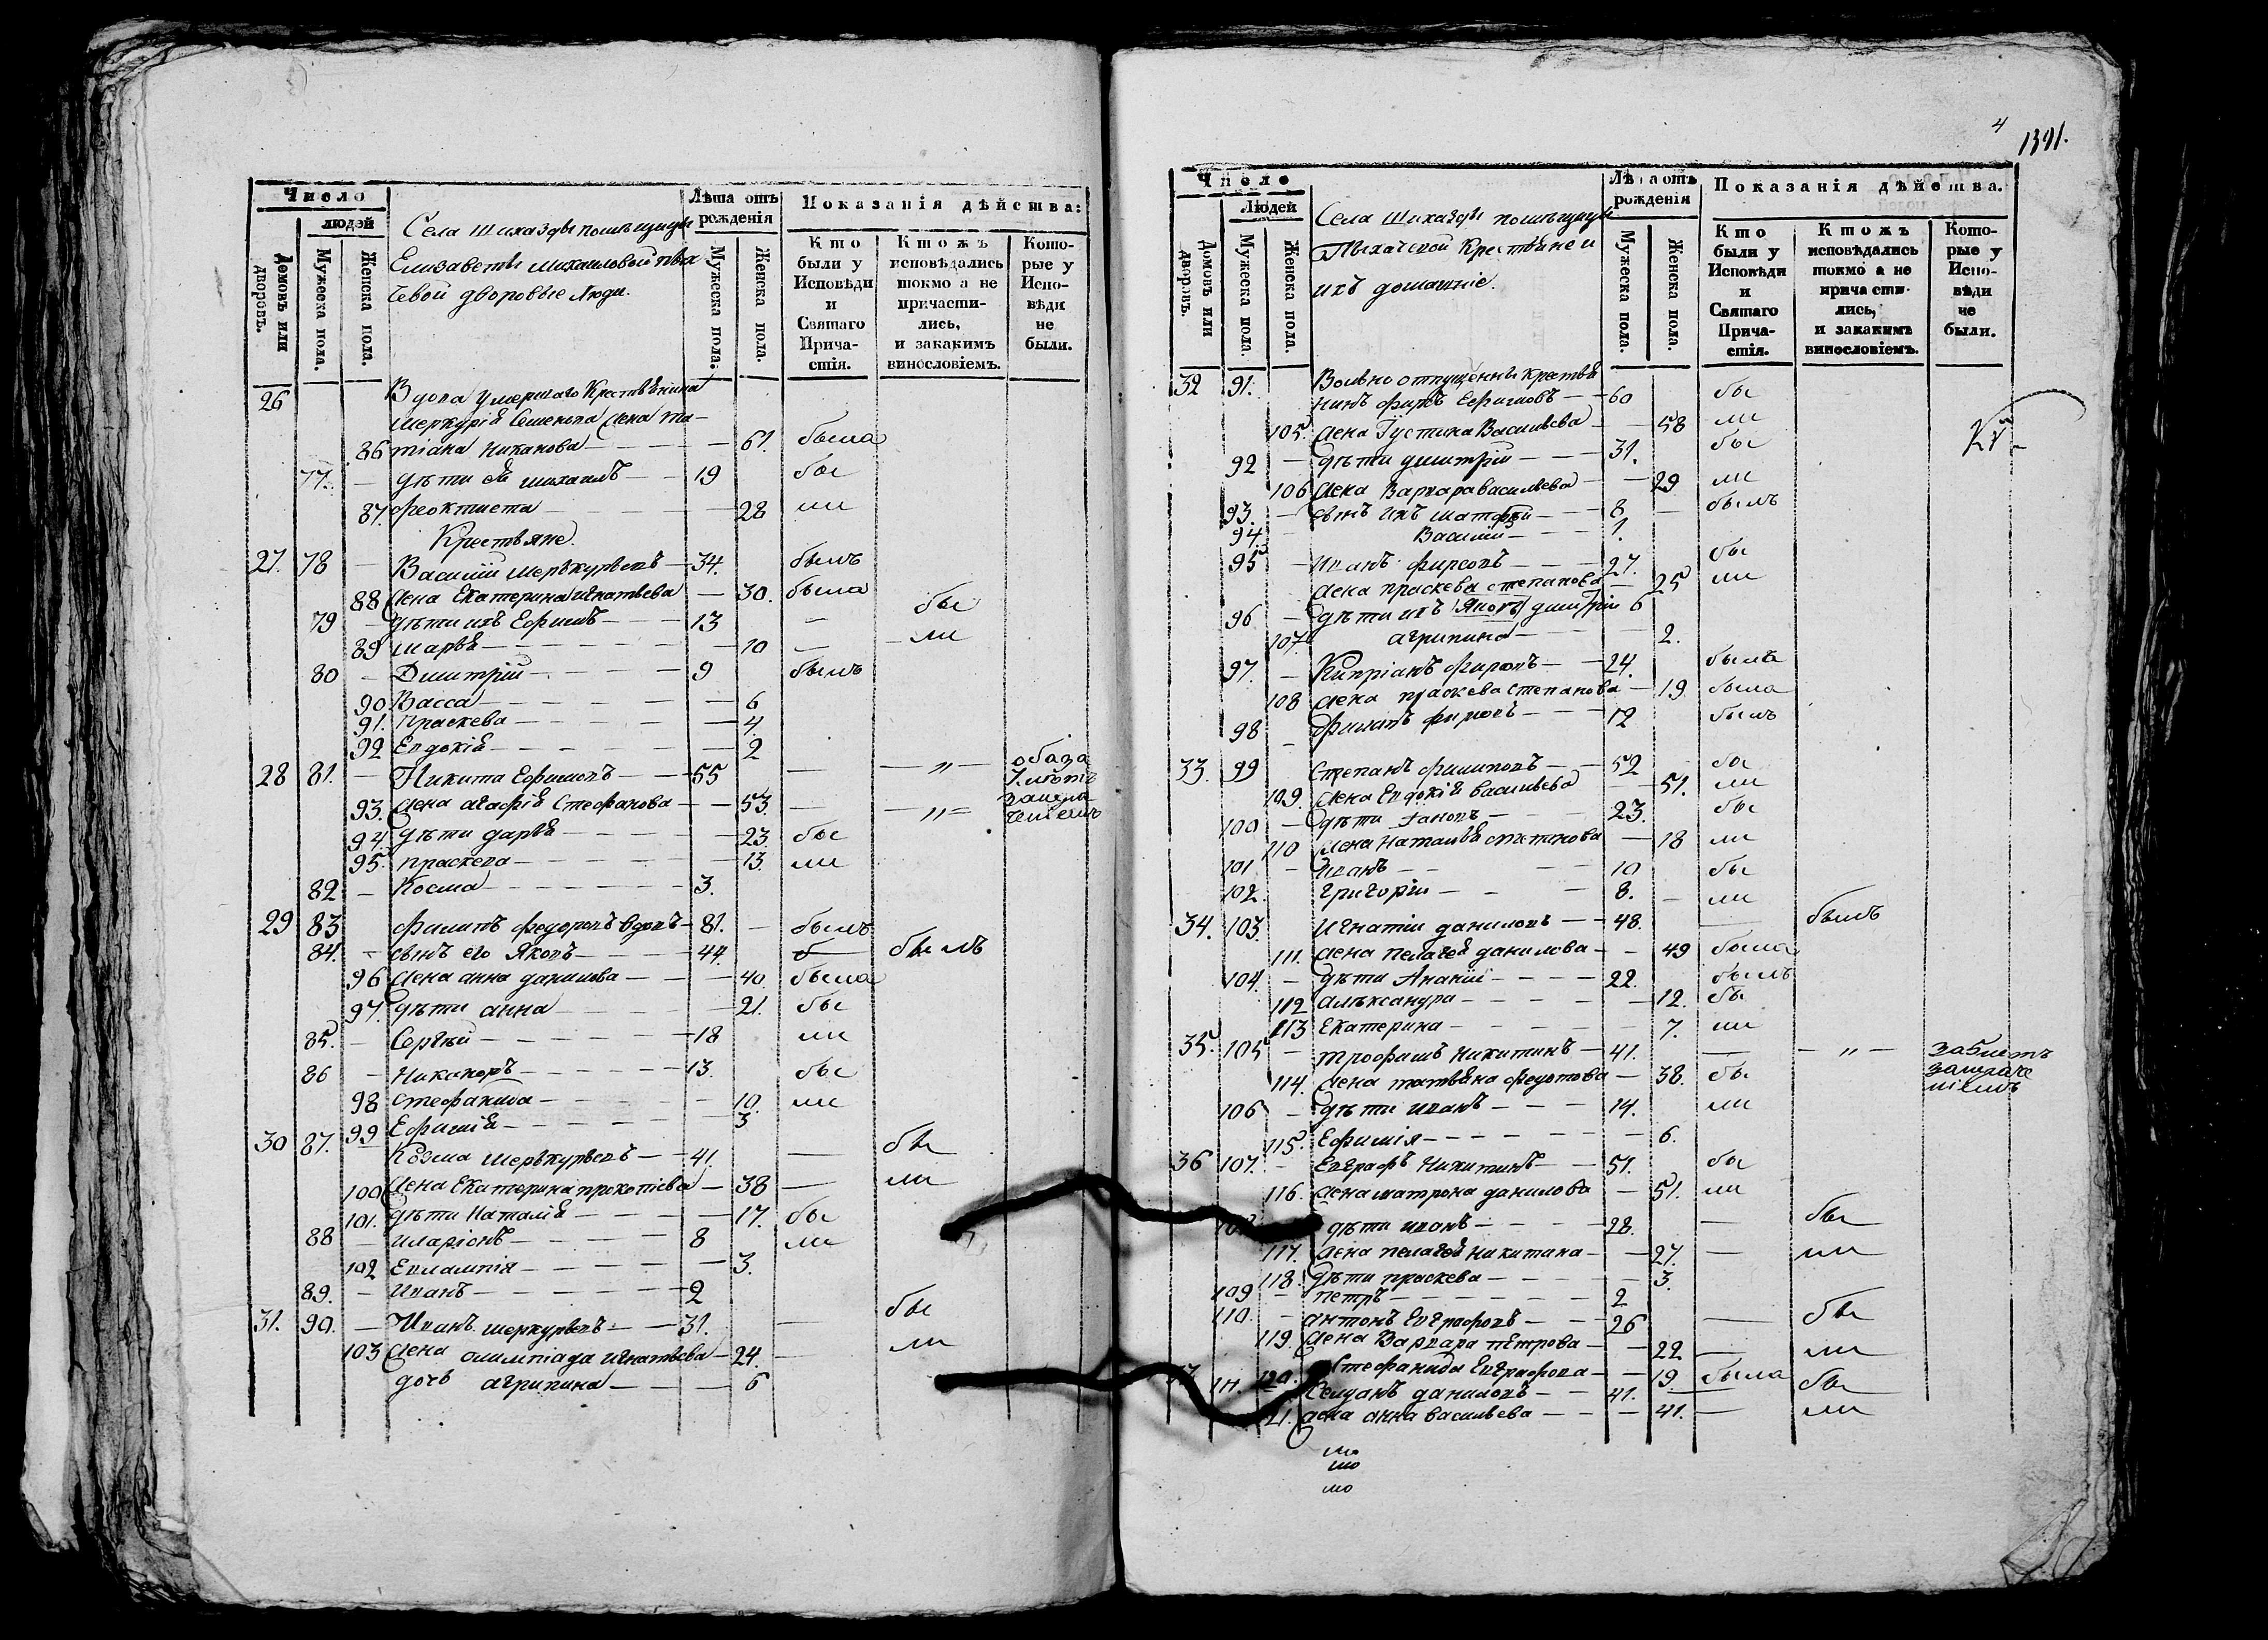 Число
людей
Домовъ или дворовъ.
Мужеска пола.
Женска пола.
Села Шихазды помѣщицы
Елизаветы Михаиловой Пых
чевой дворовые люди.
Лѣта отъ рожденія
Мужеска пола.
Женска пола.
Показанія дѣйства:
Кто были у Исповѣди и Святаго Прича- стія.
Ктожъ исповѣдались токмо а не причасти- лись, и закакимъ винословіемъ.
Кото- рые у Испо- вѣди не были.
26 Вдова умершаго Крестьянина
меркурія Семенова жена та-
86 тіана Никанова 61. была
77. дѣти ея михаилъ 19 бы
87. феоктиста 28 ли
Крестьяне.
27. 78 Василіи меркурьевъ 34. былъ
88 жена Екатерина игнатьева 30. была
79 дѣти ихъ Ефимъ 13 бы
89 марѳа 10 ли
80 Димитріи 9 былъ
90 Васса 6
91. Праскева 4.
92 Евдокія 2
28 81. Никита Ефимовъ 55 — " —
93. жена агафія Стефанова 53. — " —
94. дѣти дарья 23. бы
95. праскева 13. ли
82. Косма 3.
29 83 филипъ федоровъ вдовъ 81. былъ
84. сынъ его Яковъ 44. былъ
96 жена анна данилова 40. была
97. дѣти анна 21. бы
85. Сергѣи 18 ли
86 Никаноръ 13. бы
98 стефанида 10. ли
99 Ефимія 3
30 87. Козма меркурьевъ 41. бы
100 жена Екатерина прокопіева 38 ли
101. дѣти Наталія 17. бы
88 иларіонъ 8 ли
102 Евлампія 3.
89. иванъ 2
31. 90. Иванъ меркурьевъ 31. бы
103 жена олимпіада игнатьева 24. ли
дочь агрипина 6
4
1391.
Число
Людей
Домовъ или дворовъ.
Мужеска пола.
Женска пола.
Села Шихазды помѣщицы
Пыхачевой Крестьяне и
ихъ домашніе.
Лѣта отъ рожденія
Мужеска пола.
Женска пола.
Показанія дѣйства.
Кто были у Исповѣди и Святаго Прича- стія.
Ктожъ исповѣдались токмо а не причасти- лись, и закакимъ винословіемъ.
Кото- рые у Испо- вѣди не были.
32 91. Вольно отпущенны крестья
нинъ фирсъ Ефимовъ 60 бы
105 жена Густина Васильева 58 ли
92 дѣти димитріи 31. бы
106 жена Варвара васильева 29 ли
93. сынъ ихъ матфѣи 8 былъ
94. Василіи 1.
95 Иванъ фирсовъ 27. бы
жена праскева степанова 25 ли
96 дѣти ихъ Яковъ димитріи 6
107 агрипина 2.
97. Кипріанъ фирсовъ 24. была
108 жена праскева степанова 19 была
98 филипъ фирсовъ 12 былъ
33. 99 Степанъ филиповъ 52 бы
109. жена Евдокія васильева 51. ли
100 дѣти 23. бы
110 жена Наталья 18 ли
101 иванъ 10 бы
102. григоріи 8. ли
34. 103. Игнатіи даниловъ 48. былъ
111. жена пелагея данилова 49 была
104. дѣти Ананіи 22. былъ
112 александра 12. бы
113 Екатерина 7. ли
35. 105 трофимъ никитинъ 41. — " —
114. жена татьяна федотова 38. бы
106 дѣти иванъ 14. ли
115. Ефимія 6.
36 107. Евграфъ Никитинъ 51. бы
116. жена матрона данилова 51. ли
дѣти иванъ 28. бы
117. жена пелагея никитина 27. ли
118. дѣти праскева 3.
109 петръ 2
110. антонъ Евграфовъ 26 бы
119. жена Варвара петрова 22 ли
120. Стефанида Евграфова 19 была
даниловъ 41. бы
жена анна васильева 41. ли